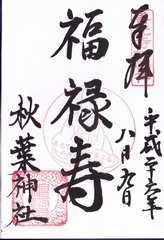 奉拝
平成二十六年
八月九日
福禄寿
秋葉神社